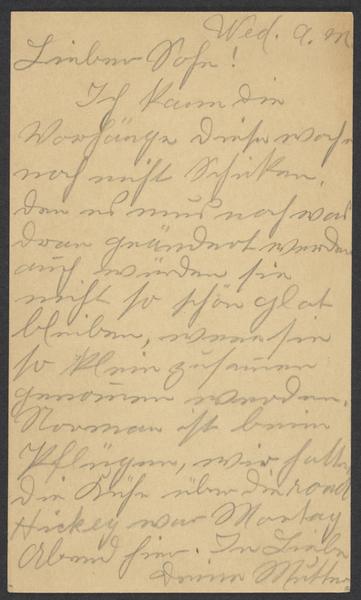 Wed. a.m
Lieber Sohn!
Ich kann die
Vorhänge diese woche
noch nicht Schicken,
den es mus noch was
dran geändert werden
auch würden sie
nicht so schön glat
bleiben, wenn sie
so klein zusammen
genommen werden.
Norman ist beim
Pflügen, wir hatten
die Kühe über die road
Hickey war Montag
Abend hier. In Liebe
Deine Mutter